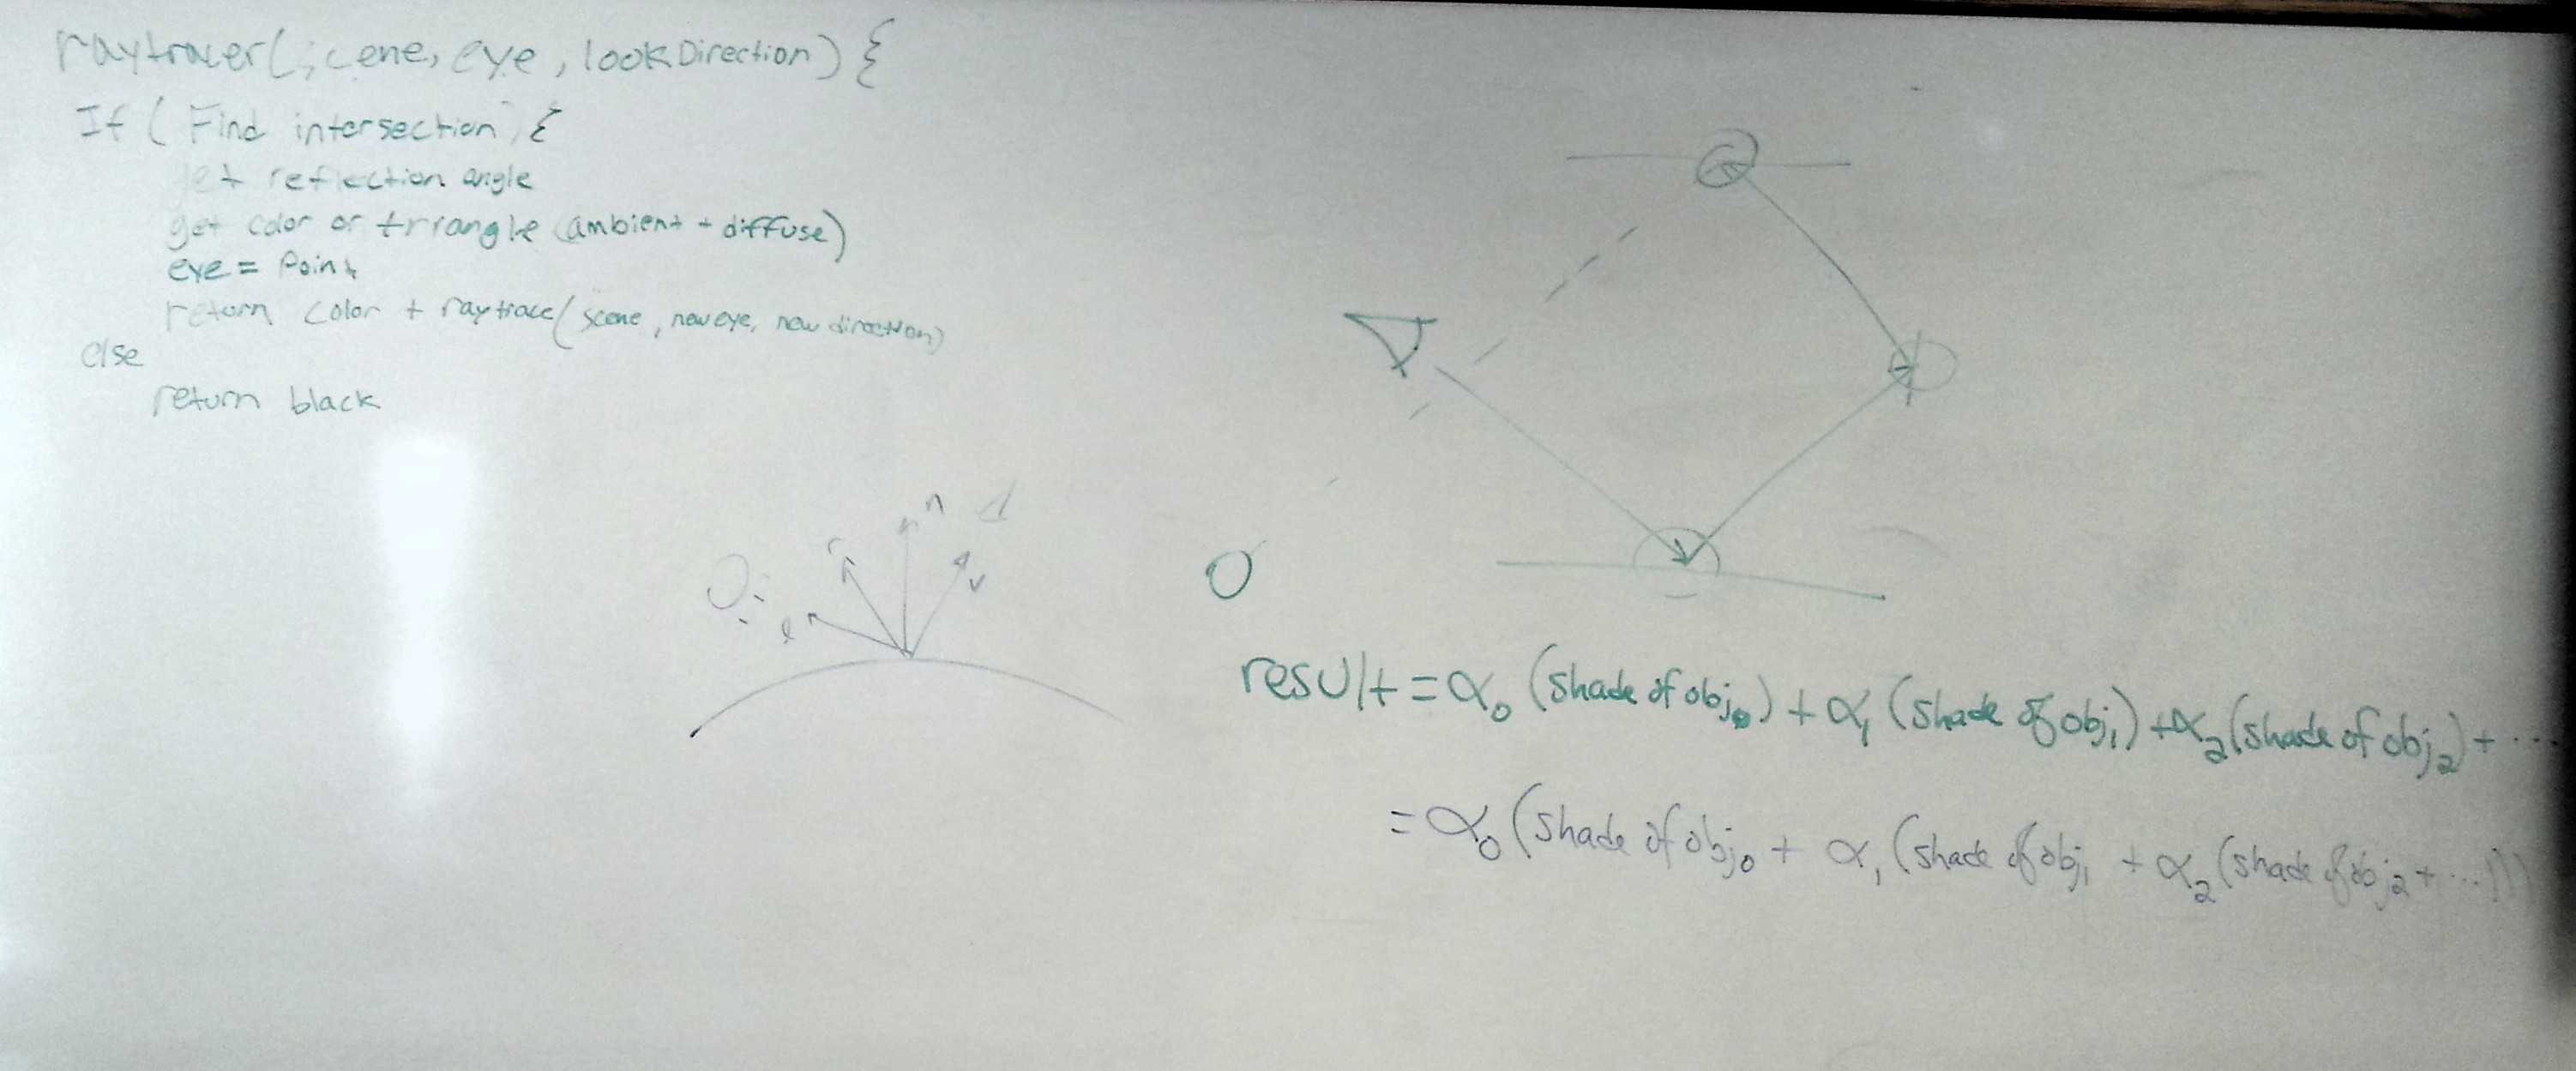 raytracer(scene, eye, lookDirection) {
If (Find intersection) {
get reflection angle
get color or triangle (ambient + diffuse)
eye = Point
return color + raytrace(scene, new eye, new direction)
else
return black
r
n
v
l
result = α₀ (shade of obj₀) + α₁ (shade of obj₁) + α₂ (shade of obj₂) + ...
= α₀ (shade of obj₀ + α₁ (shade of obj₁ + α₂ (shade of obj₂ + ...)))